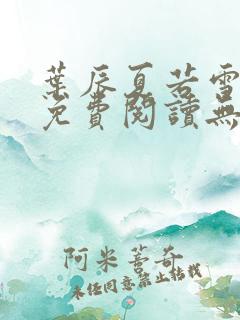 葉辰夏若雪
免費閱讀無
阿米善奇
未经同意禁止转载